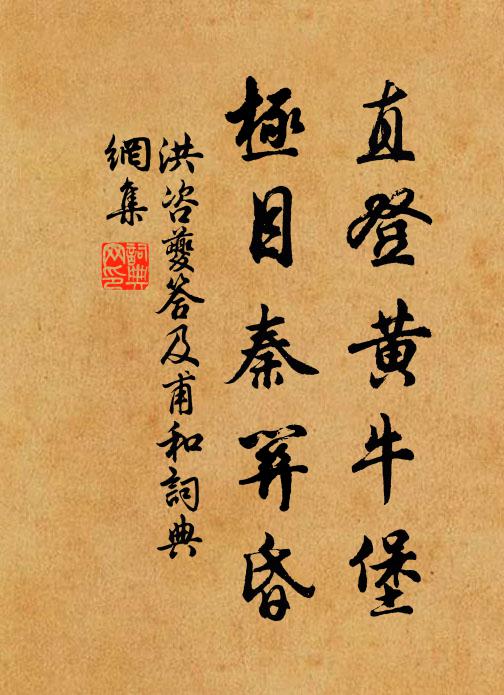 直登黄牛堡
極目秦關昏
洪咨夔答及甫和詞典
網集
詞典
网印